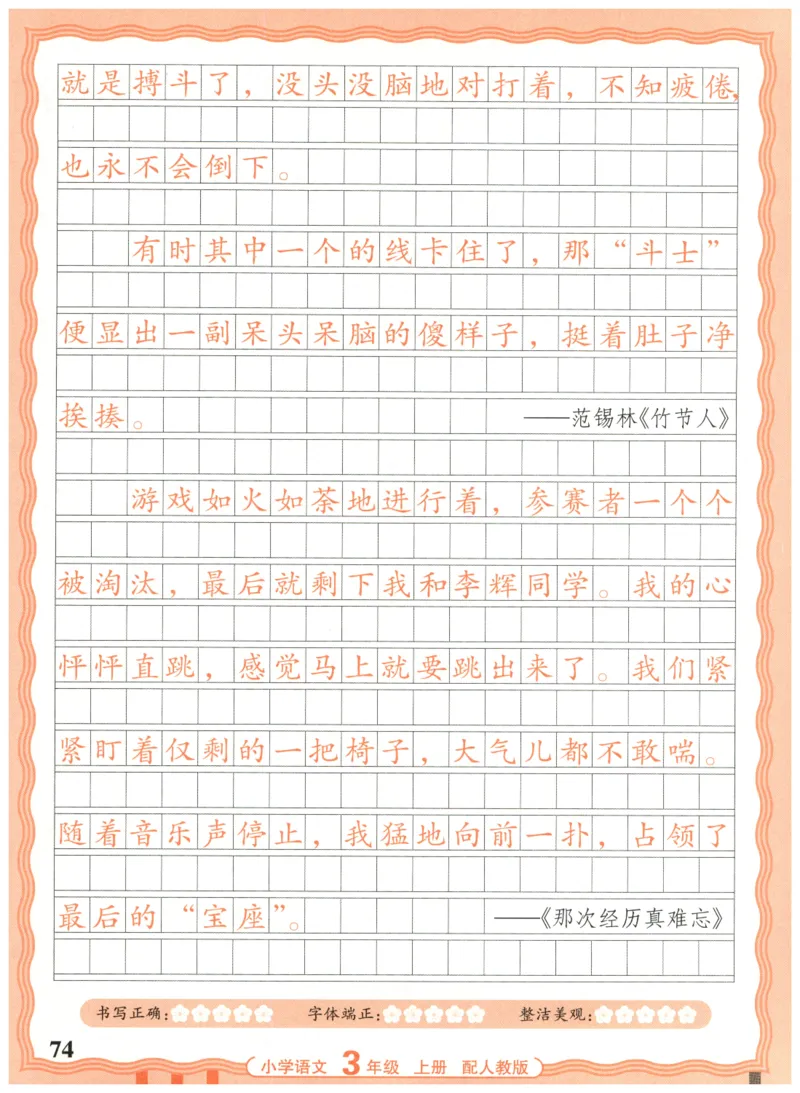 就是搏斗了，没头没脑地对打着，不知疲倦，
也永不会倒下。
有时其中一个的线卡住了，那“斗士”
便显出一副呆头呆脑的傻样子，挺着肚子净
挨揍。 ——范锡林《竹节人》
游戏如火如荼地进行着，参赛者一个个
被淘汰，最后就剩下我和李辉同学。我的心
怦怦直跳，感觉马上就要跳出来了。我们紧
紧盯着仅剩的一把椅子，大气儿都不敢喘。
随着音乐声停止，我猛地向前一扑，占领了
最后的“宝座”。 ——《那次经历真难忘》
书写正确： 字体端正： 整洁美观：
74
小学语文 3年级 上册 配人教版